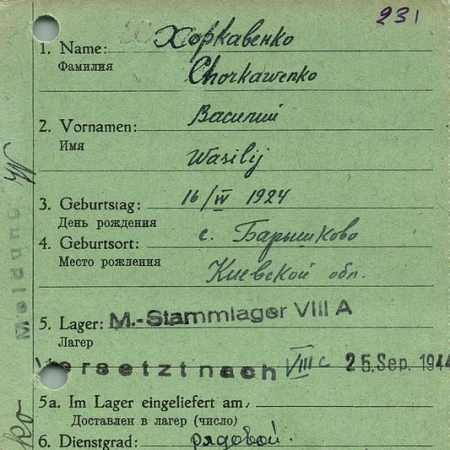 231
1. Name: Хоркавенко
Фамилия Chorkawenko
2. Vornamen: Василий
Имя Wasilij
3. Geburtstag: 16/IV 1924
День рождения
4. Geburtsort: с. Барышково
Место рождения Киевской обл.
5. Lager: M.-Stammlager VIII A
Лагерь
Versetzt nach VIII C 25. Sep. 1944
5a. Im Lager eingeliefert am
Доставлен в лагерь (число)
6. Dienstgrad: рядовой.
Meldung